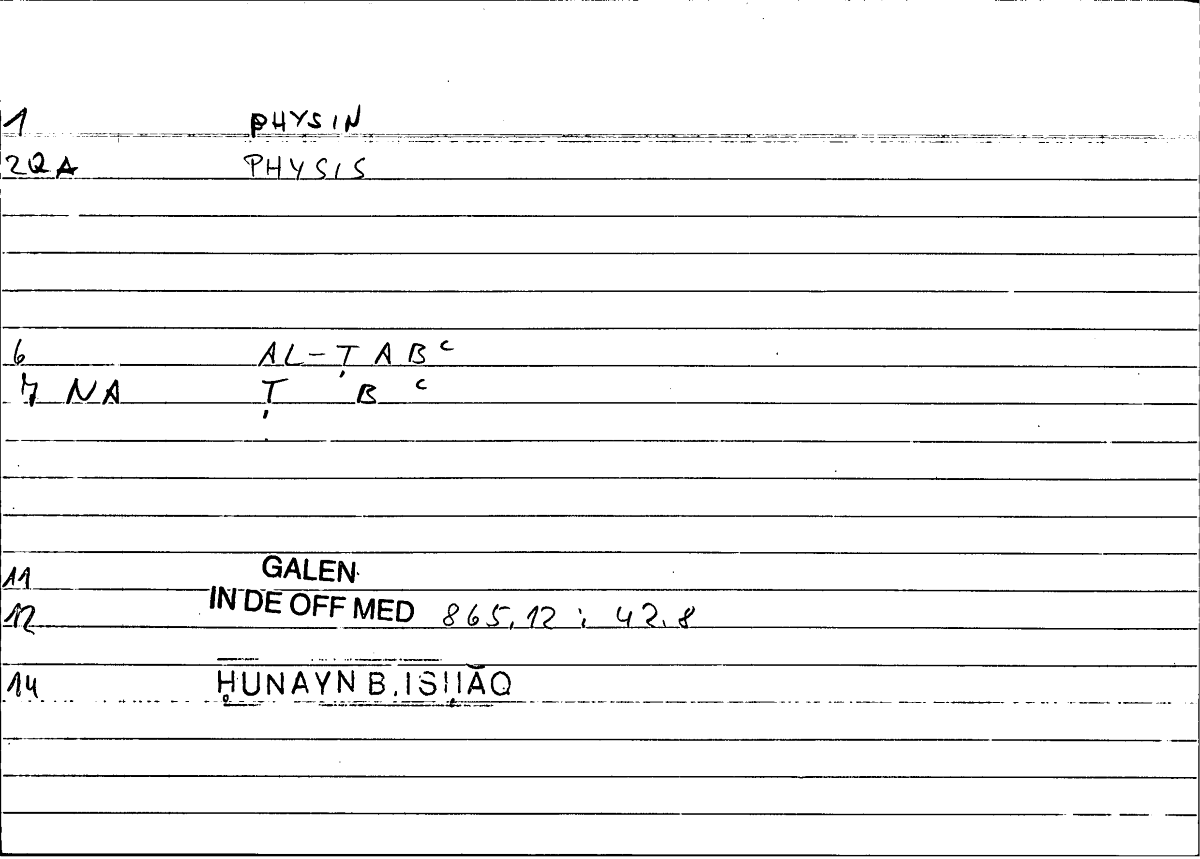 1 PHYSIN
2QA PHYSIS
6 AL-ṬABᶜ
7 NA Ṭ B ᶜ
11 GALEN
12 IN DE OFF MED 865,12 ; 42.8
14 ḤUNAYN B. ISḤĀQ